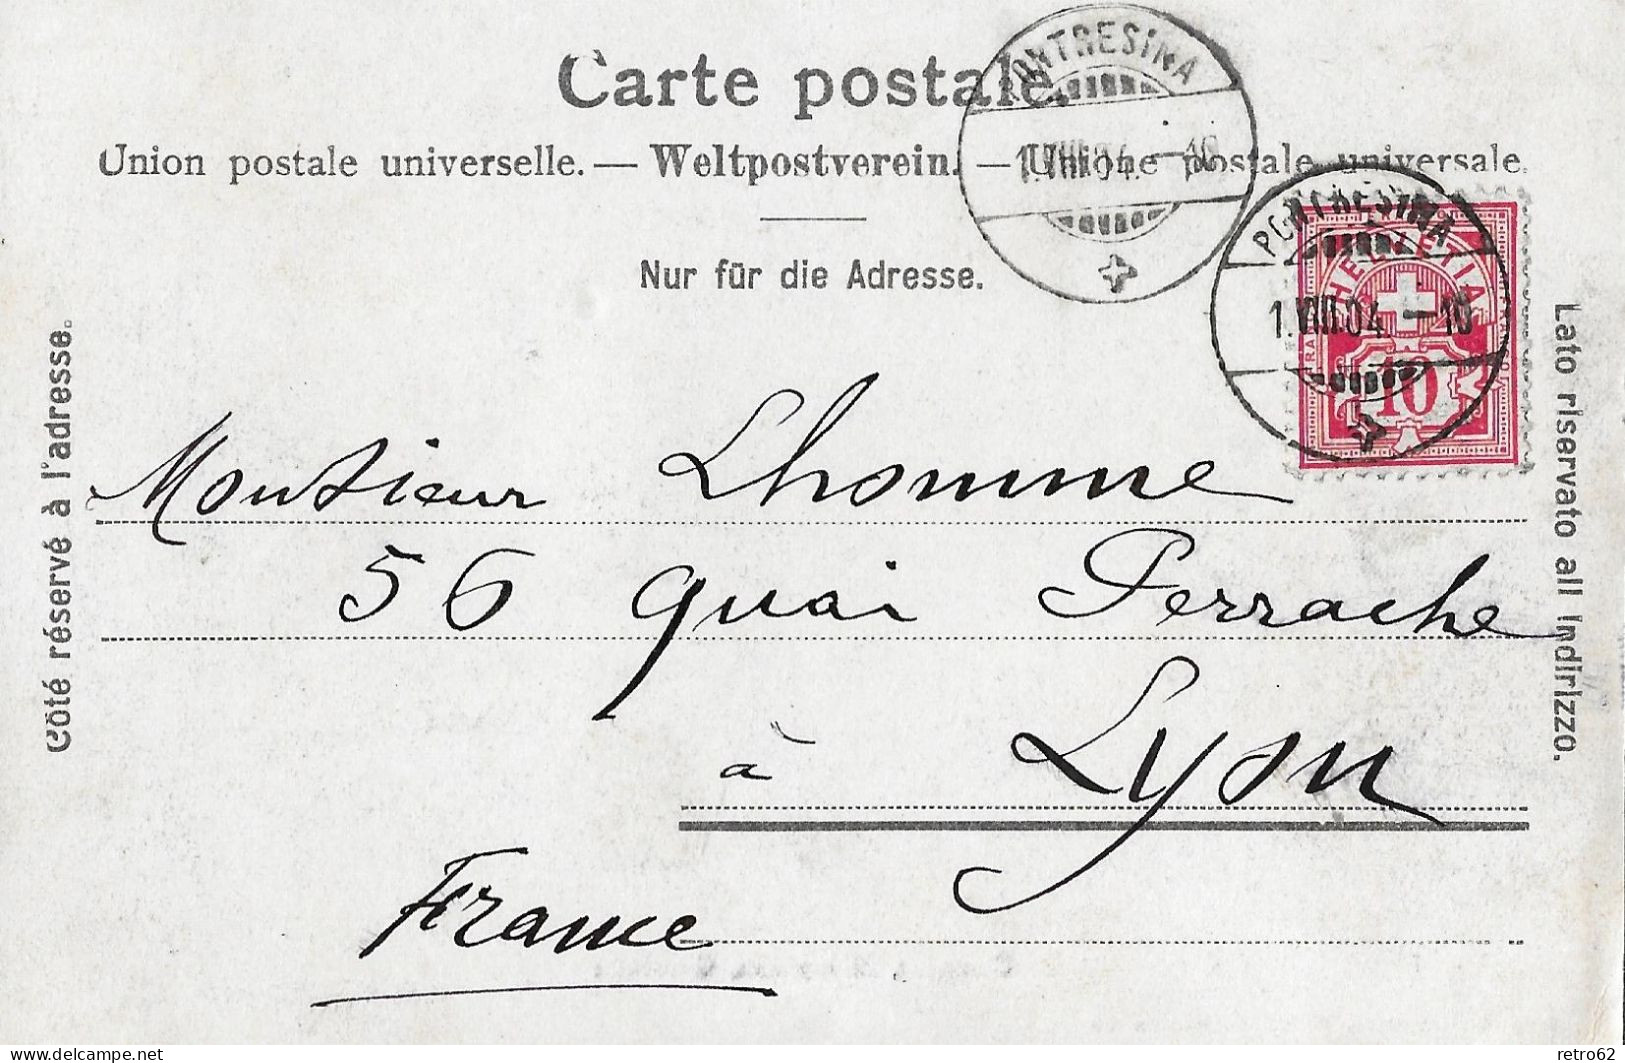 Carte postale.
Union postale universelle. — Weltpostverein. — Unione postale universale.
Nur für die Adresse.
Côté réservé à l'adresse.
Lato riservato all Indirizzo.
PONTRESINA
1.VIII.04.–10
PONTRESINA
1.VIII.04.–10
HELVETIA
FRANCO
10
Monsieur Lhomme
56 quai Perrache
à Lyon
France
delcampe.net
retro62